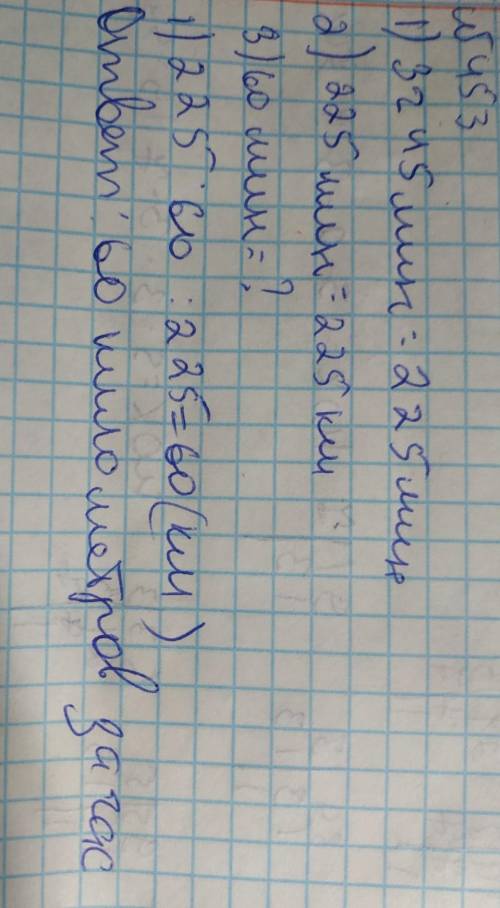 № 453
1) 3г 45мин = 225мин
2) 225мин = 225км
3) 60мин = ?
1) 225 · 60 : 225 = 60 (км)
Ответ: 60 километров за час